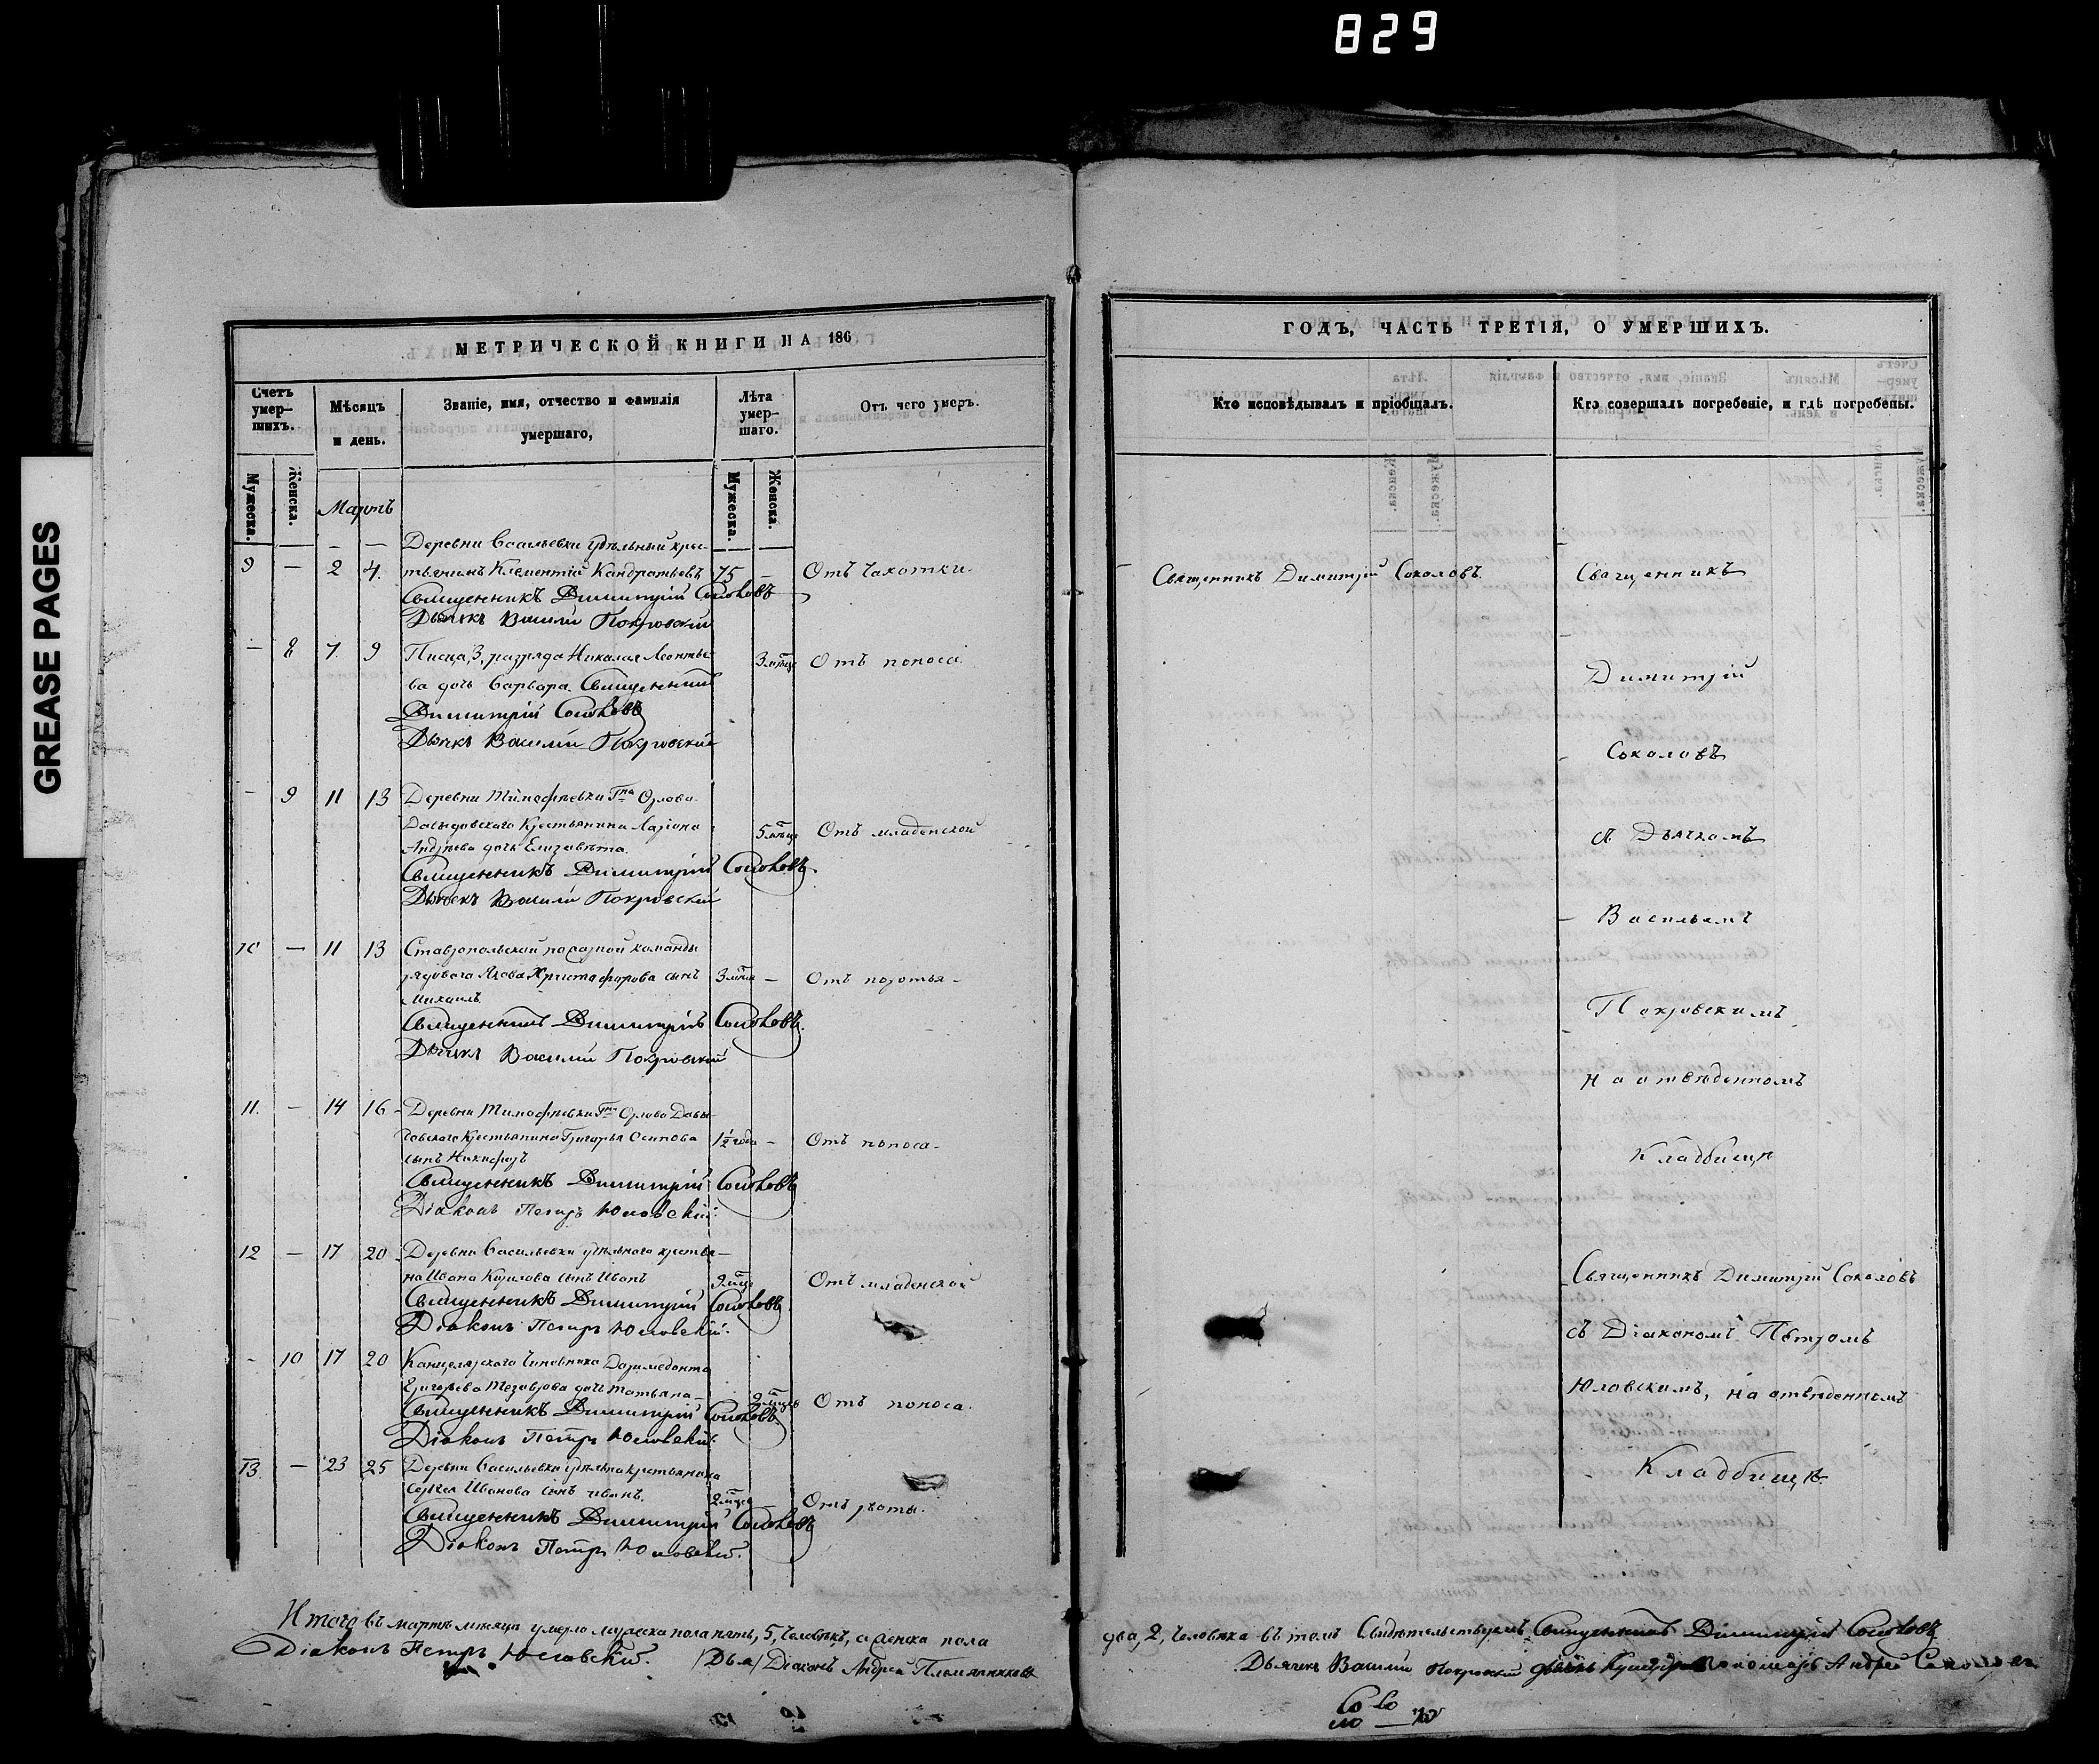 829
GREASE PAGES
МЕТРИЧЕСКОЙ КНИГИ НА 186
Счетъ умер-
шихъ.
Мѣсяцъ
и день.
Званіе, имя, отчество и фамилія
умершаго,
Лѣта
умер-
шаго.
Отъ чего умеръ.
Мужеска.
Женска.
Мужеска.
Женска.
Мартъ
Деревни Васильевки удѣльный крес-
9 — 2 4. тьянинъ Клементій Кандратьевъ 75 — Отъ чахотки.
Священникъ Димитрій Соколовъ
Дьячкъ Василій Покровскій
— 8 7. 9 Писца, 3, разряда Николая Леонтье-
ва дочь Варвара. Священникъ 3 мѣсц Отъ поноса.
Димитрій Соколовъ
Дьячкъ Василій Покровскій
— 9 11 13 Деревни Тимофѣевки Гна Орлова-
Давыдовскаго Крестьянина Ларіона 5 мѣсц Отъ младенской
Андреева дочь Елизавѣта.
Священникъ Димитрій Соколовъ
Дьячекъ Василій Покровскій
10 — 11 13 Ставропольской пожарной команды
рядоваго Якова Христофорова сынъ 3 — Отъ
Михаилъ.
Священникъ Димитрій Соколовъ
Дьячкъ Василій Покровскій
11. — 14 16 Деревни Тимофѣевки Гна Орлова Давы-
довскаго Крестьянина Григорья Осипова 1½ года — Отъ поноса.
сынъ Никифоръ
Священникъ Димитрій Соколовъ
Діаконъ Петръ Юловскій.
12 — 17 20 Деревни Васильевки удѣльнаго крестья-
на Ивана Кирилова сынъ Иванъ 9 мѣсц Отъ младенской
Священникъ Димитрій Соколовъ
Діаконъ Петръ Юловскій.
- 10 17 20 Канцелярскаго Чиновника Доримедонта
Григорьева дочь Татьяна 9 Отъ поноса.
Священникъ Димитрій Соколовъ
Діаконъ Петръ Юловскій.
13. — 23 25 Деревни Васильевки удѣльна крестьянина
Сергея Иванова сынъ Иванъ. 2 Отъ рвоты.
Священникъ Димитрій Соколовъ
Діаконъ Петръ Юловскій.
Итого въ мартѣ мѣсяцѣ умерло мужеска пола пять, 5, человѣкъ, а женска пола
Діаконъ Петръ Юловскій. Діаконъ Андрей
ГОДЪ, ЧАСТЬ ТРЕТІЯ, О УМЕРШИХЪ.
Кто исповѣдывалъ и пріобщалъ.
Кто совершалъ погребеніе, и гдѣ погребены.
Священникъ Димитрій Соколовъ.
Священникъ
Димитрій
Соколовъ
съ Дьячкомъ
Васильемъ
Покровскимъ
на отведенномъ
Кладбищѣ
Священникъ Димитрій Соколовъ
съ Діакономъ Петромъ
Юловскимъ, на отведенномъ
Кладбищѣ.
два, 2, человѣка въ томъ Свидѣтельствуемъ Священникъ Димитрій Соколовъ
Дьячкъ Василій Покровскій Пономарь Андрей